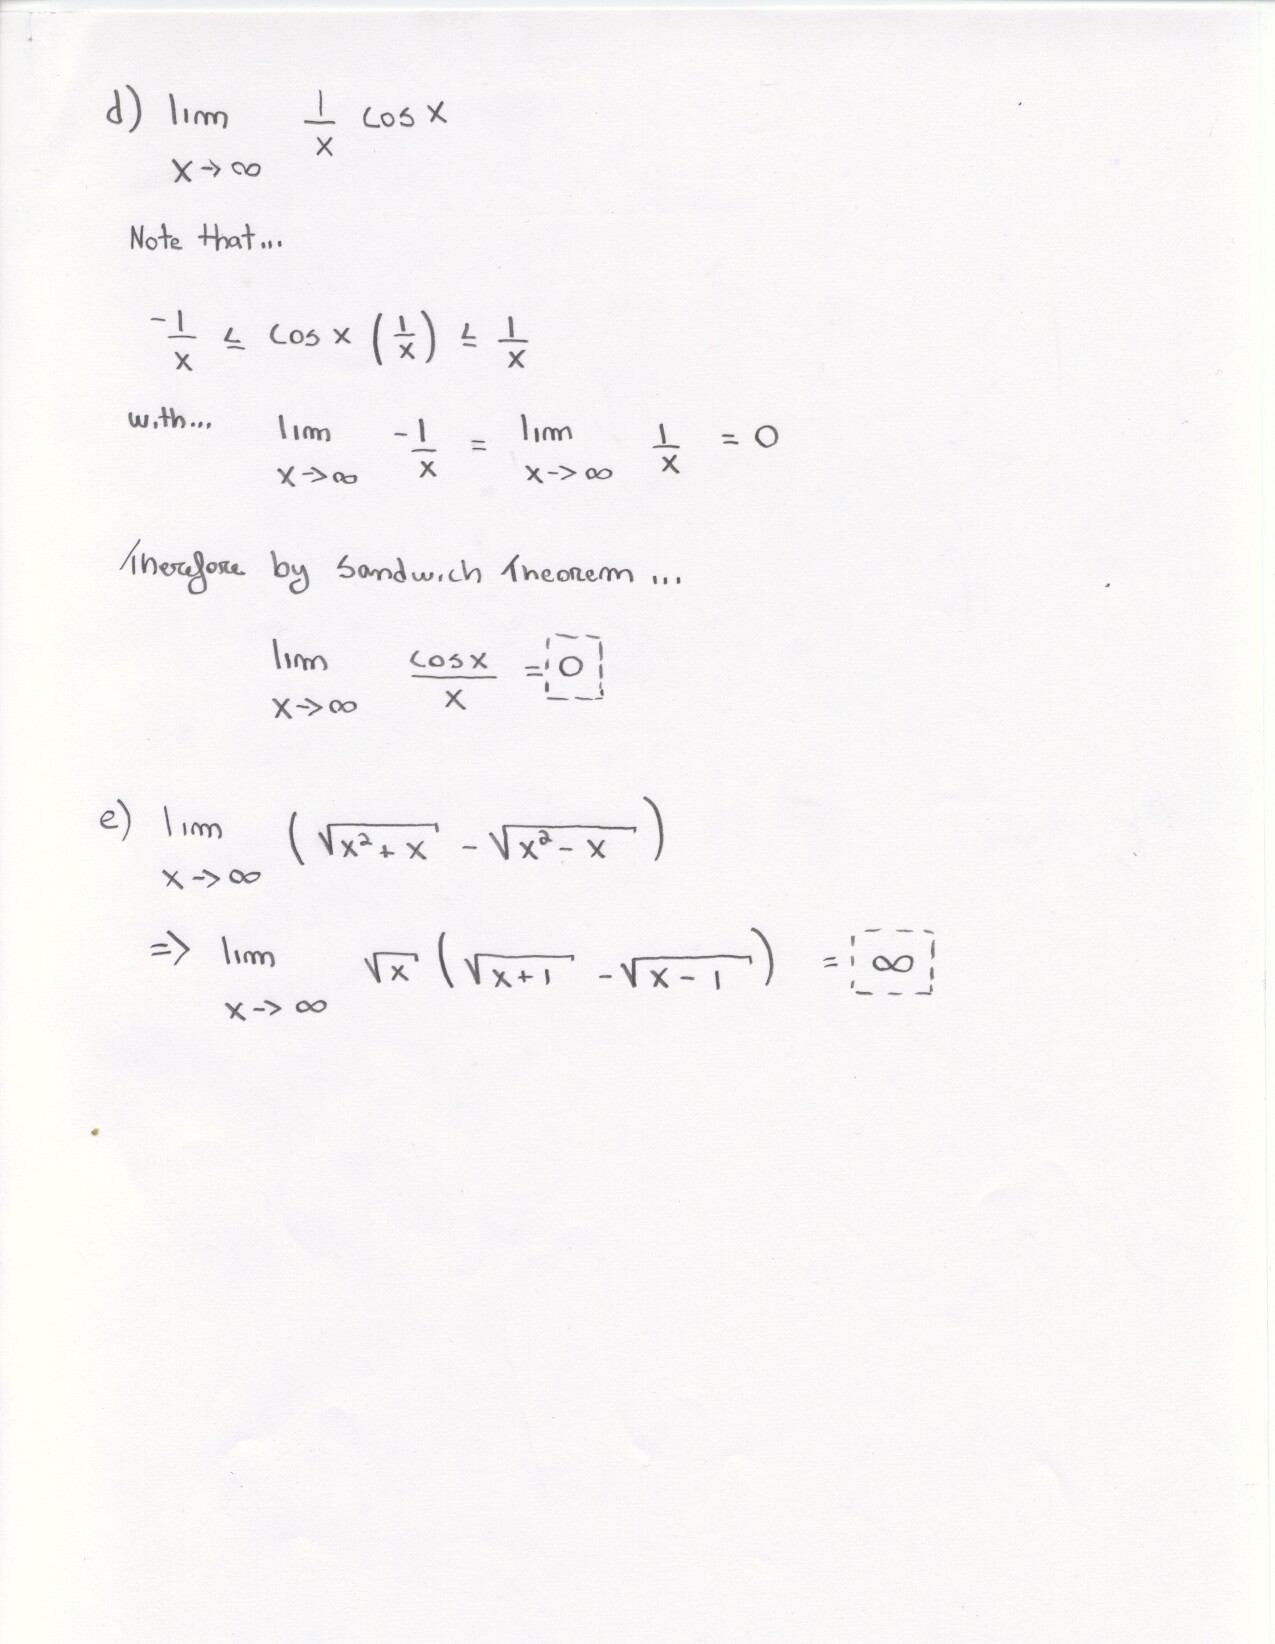 d) lim 1/x cos x
x→∞
Note that...
-1/x ≤ cos x (1/x) ≤ 1/x
with... lim -1/x = lim 1/x = 0
x→∞ x→∞
Therefore by Sandwich Theorem...
lim cosx/x = 0
x→∞
e) lim (√(x²+x) - √(x²-x))
x→∞
=> lim √x (√(x+1) - √(x-1)) = ∞
x→∞